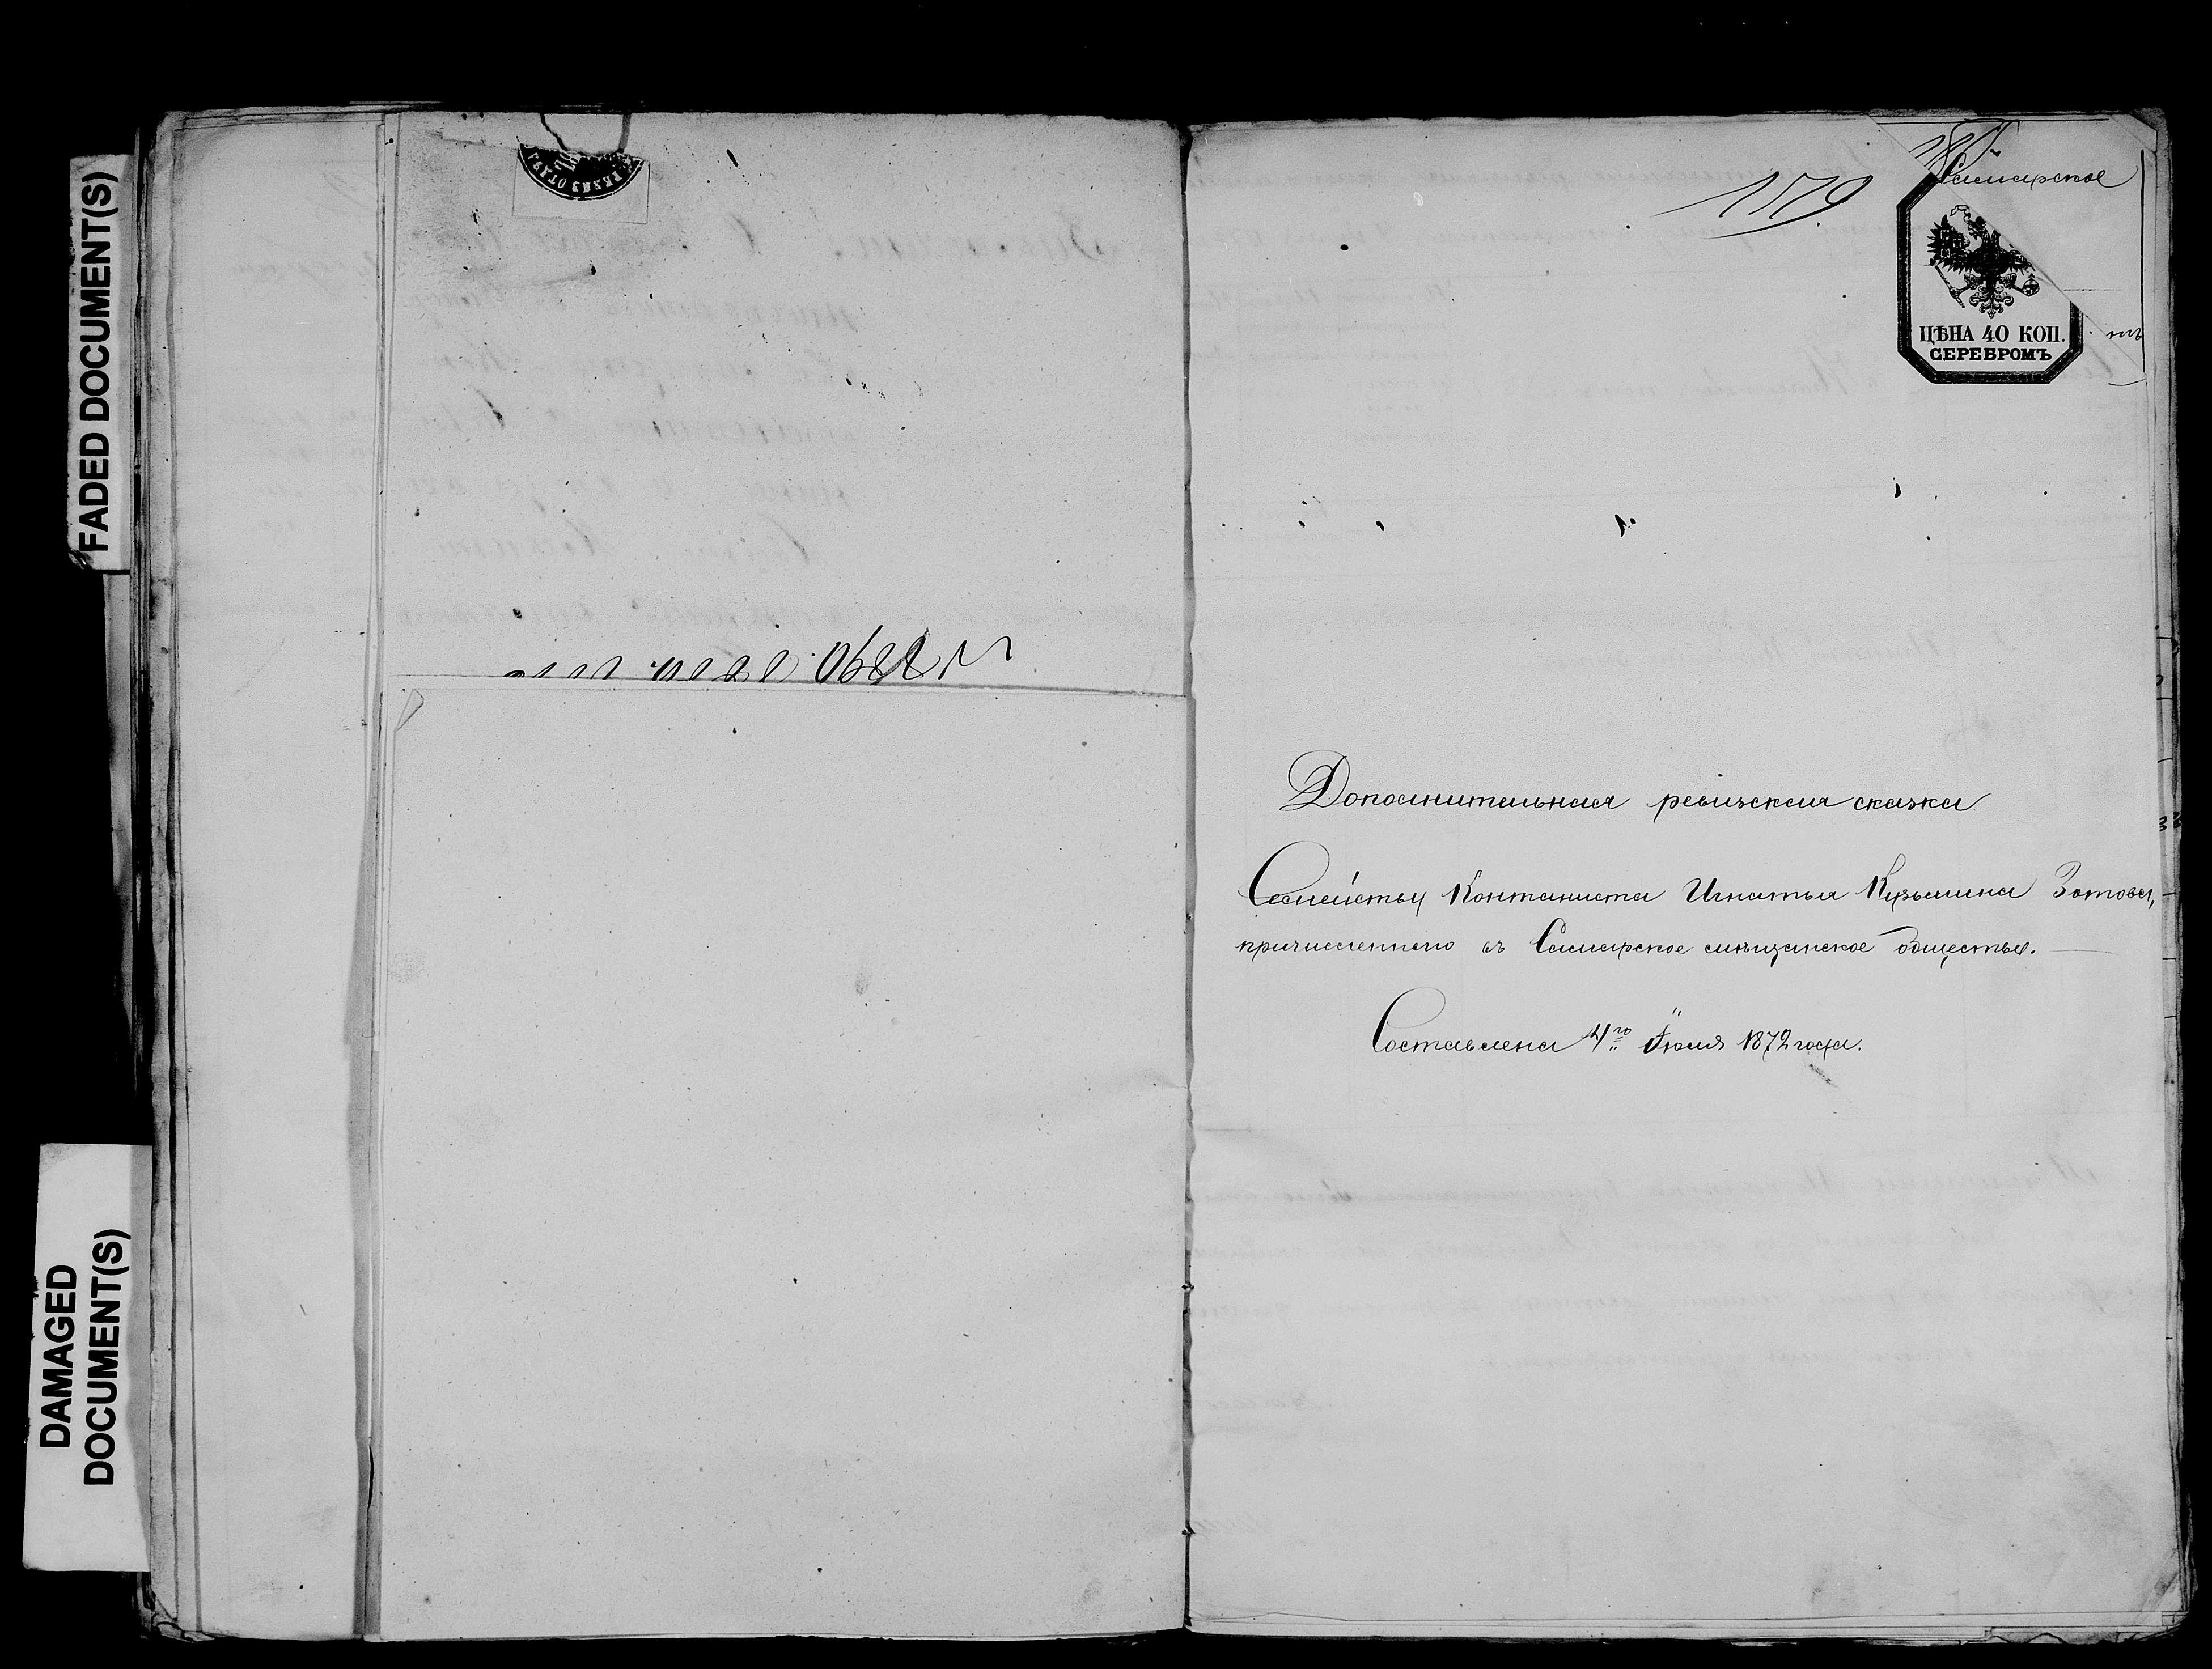 FADED DOCUMENT(S)
DAMAGED
DOCUMENT(S)
179
Самарское
ЦѢНА 40 КОП.
СЕРЕБРОМЪ
Дополнительная ревизская сказка
Семейству Кантониста Игнатья Кузьмина Зотова,
причисленнаго въ Самарское мѣщанское общество.
Составлена 4го Іюля 1872 года.